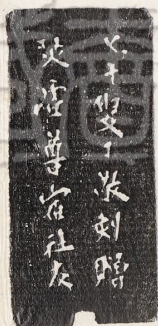 七十叟丁敬刻贈
烎虛尊宿社友